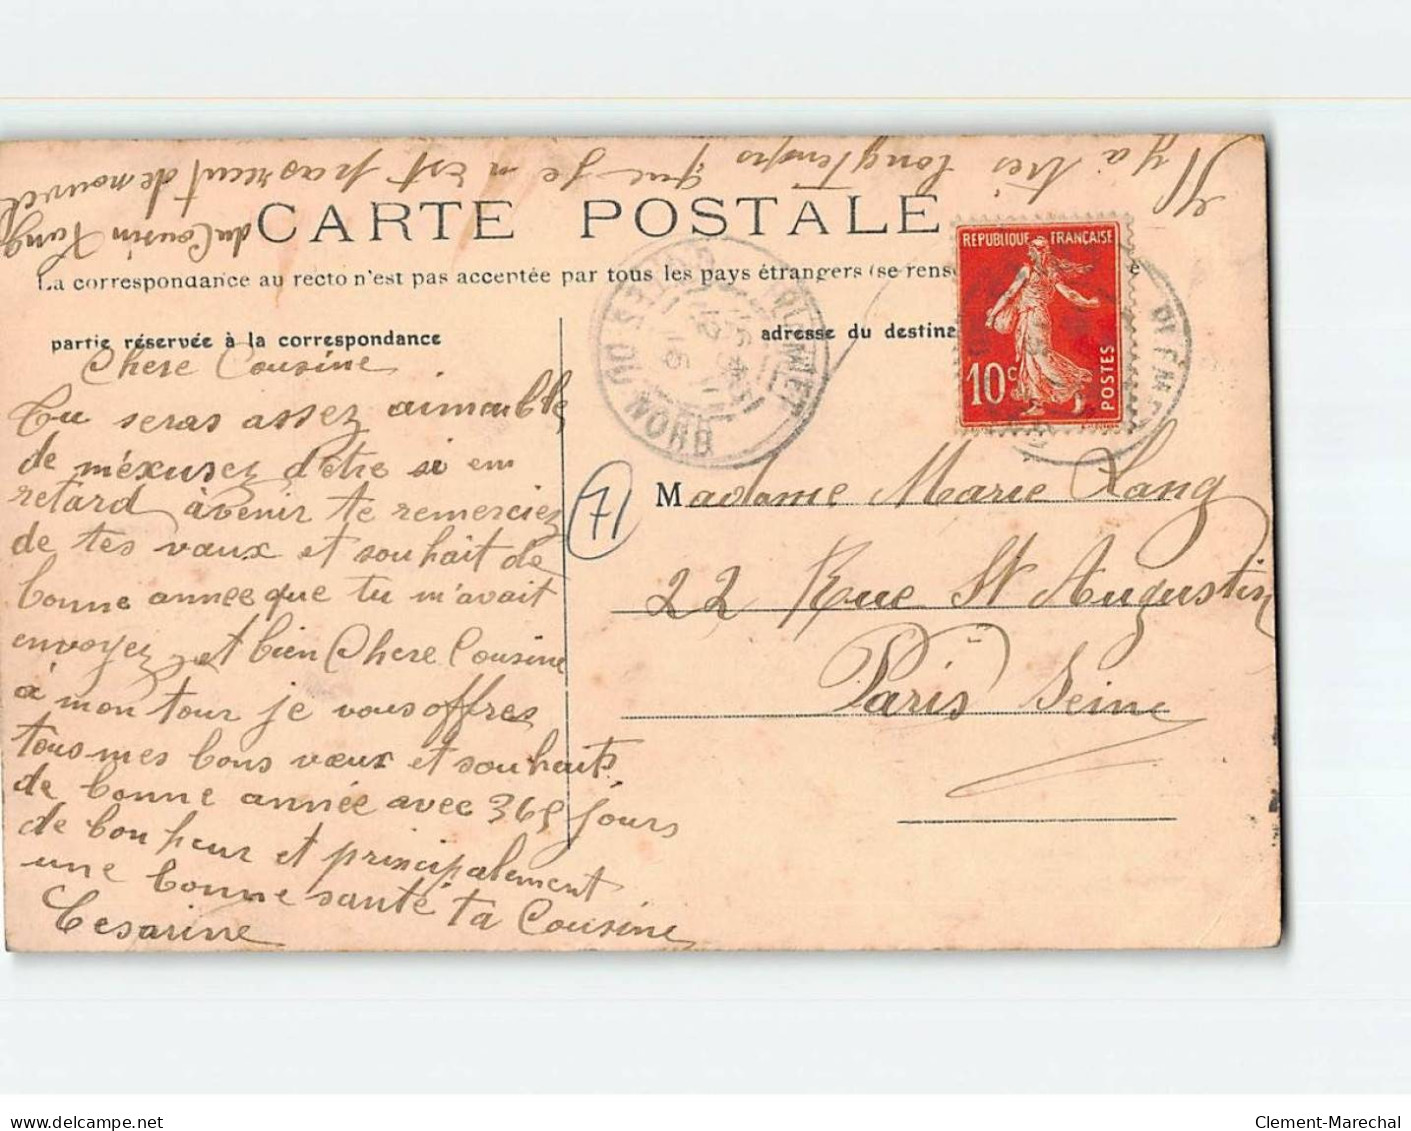 Il y a très longtemps que je n est pas recut de nouvel
du Cousin Lang
CARTE POSTALE
La correspondance au recto n'est pas acceptée par tous les pays étrangers (se rens
partie réservée à la correspondance
adresse du destina
REPUBLIQUE FRANÇAISE
10 c
POSTES
DU NORD
16
Chere Cousine
Tu seras assez aimable
de méxusez d'être si em
retard àvenir te remerciez
de tes vœux et souhait de
bonne annee que tu m'avait
envoyez et bien Chere Cousine
à mon tour je vous offres
tous mes bons vœux et souhaits
de bonne année avec 365 jours
de bonheur et principalement
une bonne santé ta Cousine
Cesarine
71
Madame Marie Lang
22 Rue St Augustin
Paris Seine
delcampe.net
Clement-Marechal